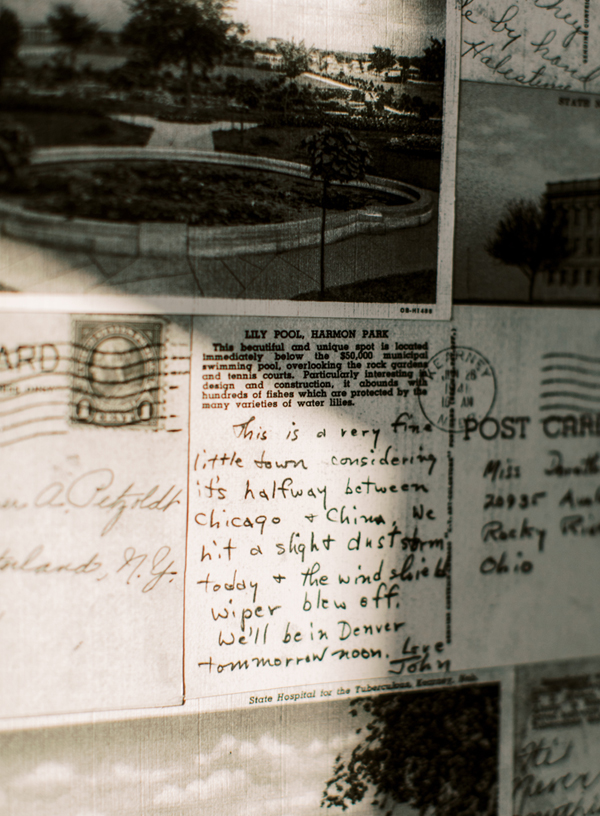 they
by hand
STATE
OB-H1498
ARD
LILY POOL, HARMON PARK
This beautiful and unique spot is located
immediately below the $50,000 municipal
swimming pool, overlooking the rock gardens
and tennis courts. Particularly interesting in
design and construction, it abounds with
hundreds of fishes which are protected by the
many varieties of water lilies.
This is a very fine
little town considering
it's halfway between
Chicago + China. We
hit a slight duststorm
today + the windshield
wiper blew off.
We'll be in Denver
tommorrow noon. Love
John
A. Petzoldt
N.Y.
KEARNEY
NEBR
POST CARD
Miss
20935
Rocky
Ohio
State Hospital for the Tuberculous, Kearney, Neb.
never